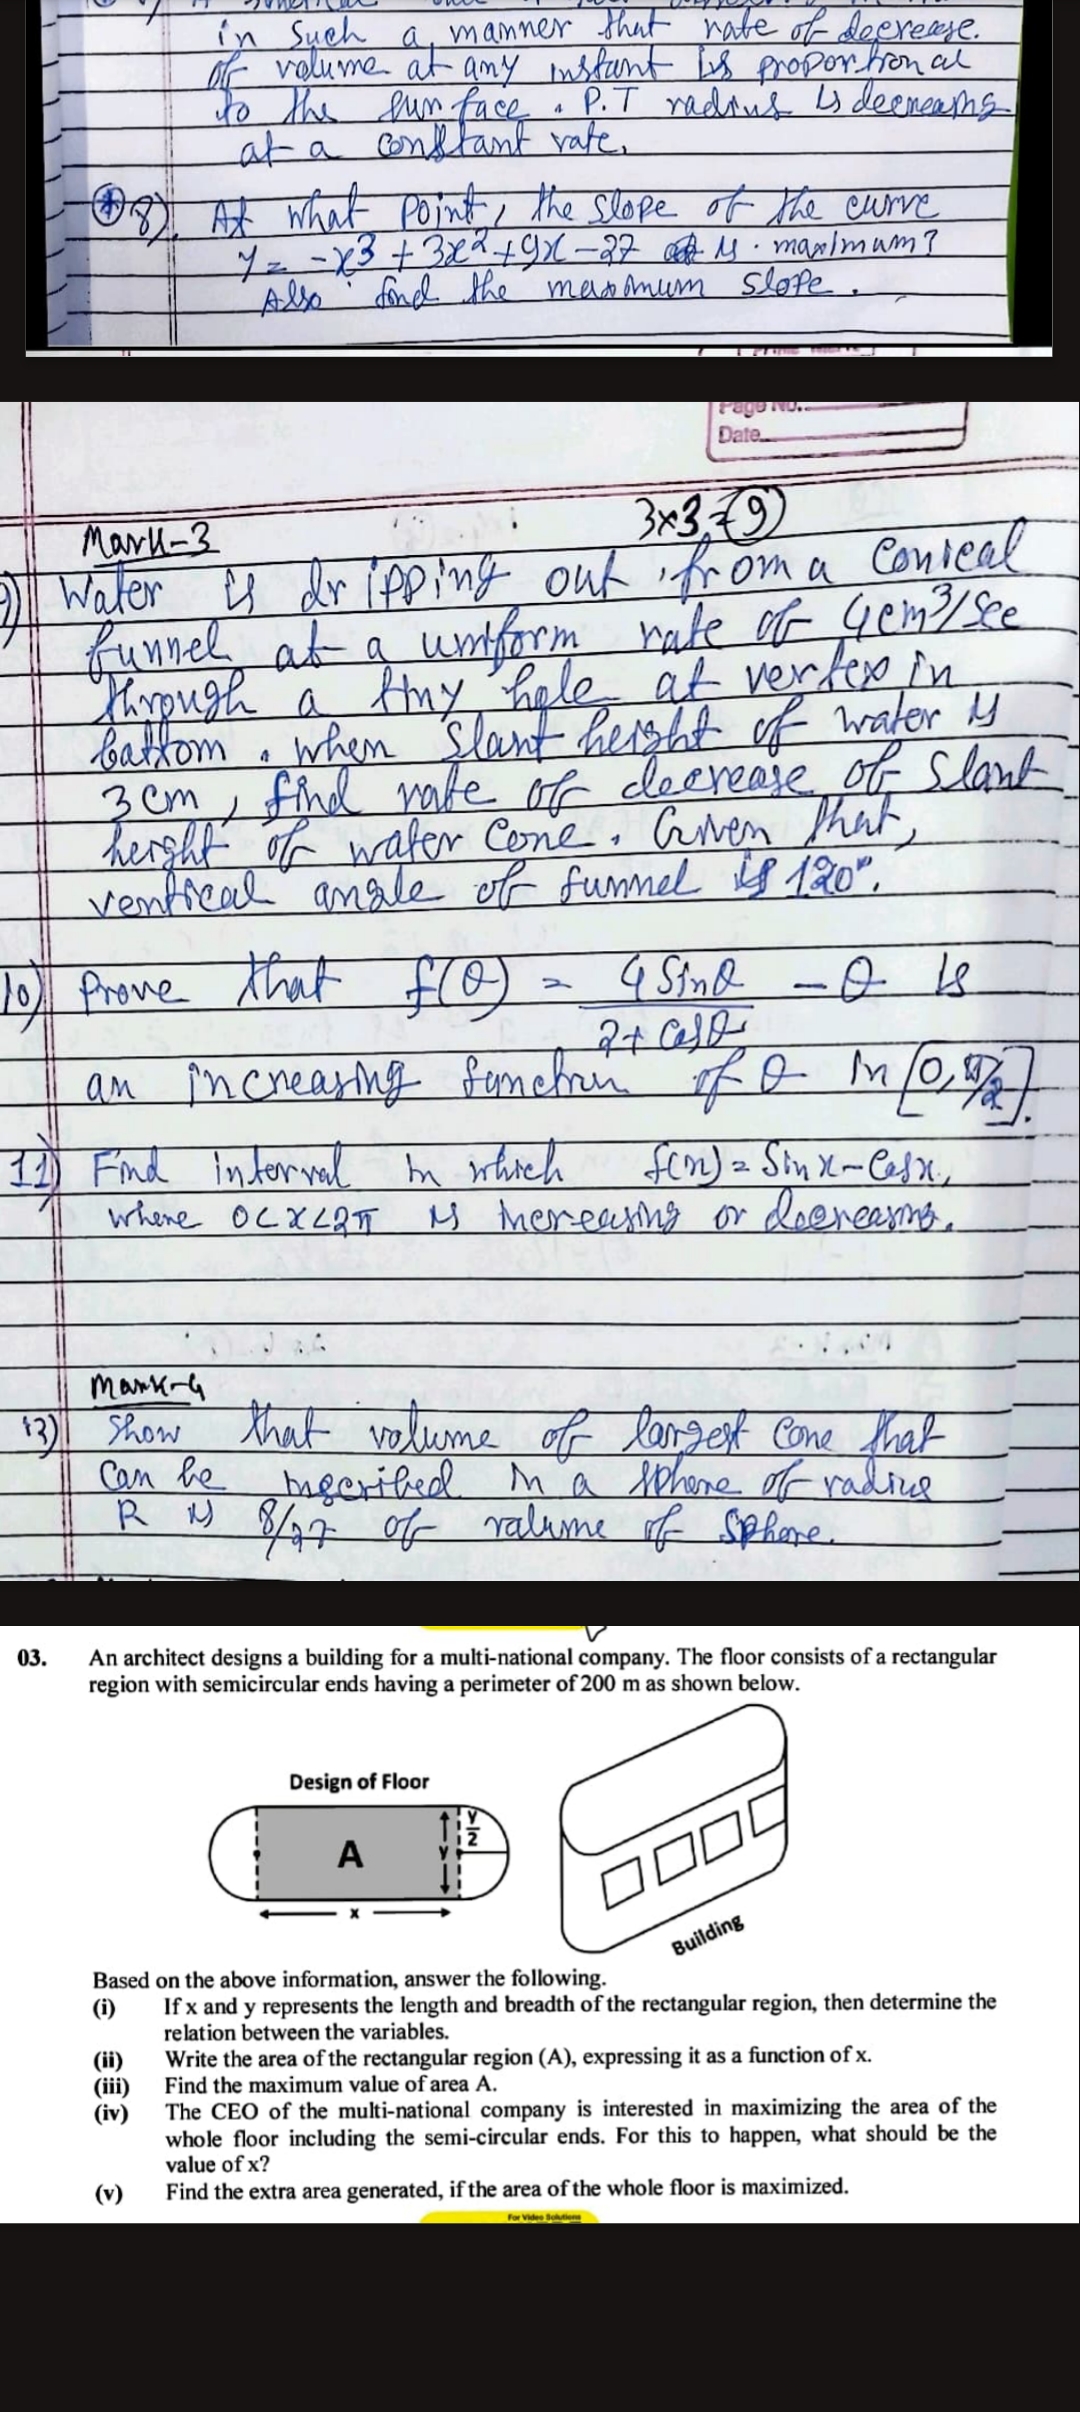 in such a manner that rate of decrease.
of volume at any instant is proportional
to the surface. P.T radius is decreasing
at a constant rate.
8). At what point, the slope of the curve
y = -x3 + 3x2 + 9x - 27 is maximum?
Also find the maximum slope.
Page No.
Date
Mark-3 3x3=9
9) Water is dripping out from a conical
funnel at a uniform rate of 4cm3/sec
through a tiny hole at vertex in
bottom. when slant height of water is
3cm, find rate of decrease of slant
height of water cone. Given that,
vertical angle of funnel is 120°.
10) Prove that f(θ) = 4 sinθ / 2+cosθ - θ is
an increasing function of θ in [0, π/2].
11) Find interval in which f(x) = Sin x - Cos x,
where 0<x<2π is increasing or decreasing.
Mark-4
13) Show that volume of largest cone that
can be inscribed in a sphere of radius
R is 8/27 of volume of sphere.
03. An architect designs a building for a multi-national company. The floor consists of a rectangular
region with semicircular ends having a perimeter of 200 m as shown below.
Design of Floor
A
y
y/2
x
Building
Based on the above information, answer the following.
(i) If x and y represents the length and breadth of the rectangular region, then determine the
relation between the variables.
(ii) Write the area of the rectangular region (A), expressing it as a function of x.
(iii) Find the maximum value of area A.
(iv) The CEO of the multi-national company is interested in maximizing the area of the
whole floor including the semi-circular ends. For this to happen, what should be the
value of x?
(v) Find the extra area generated, if the area of the whole floor is maximized.
For Video Solutions